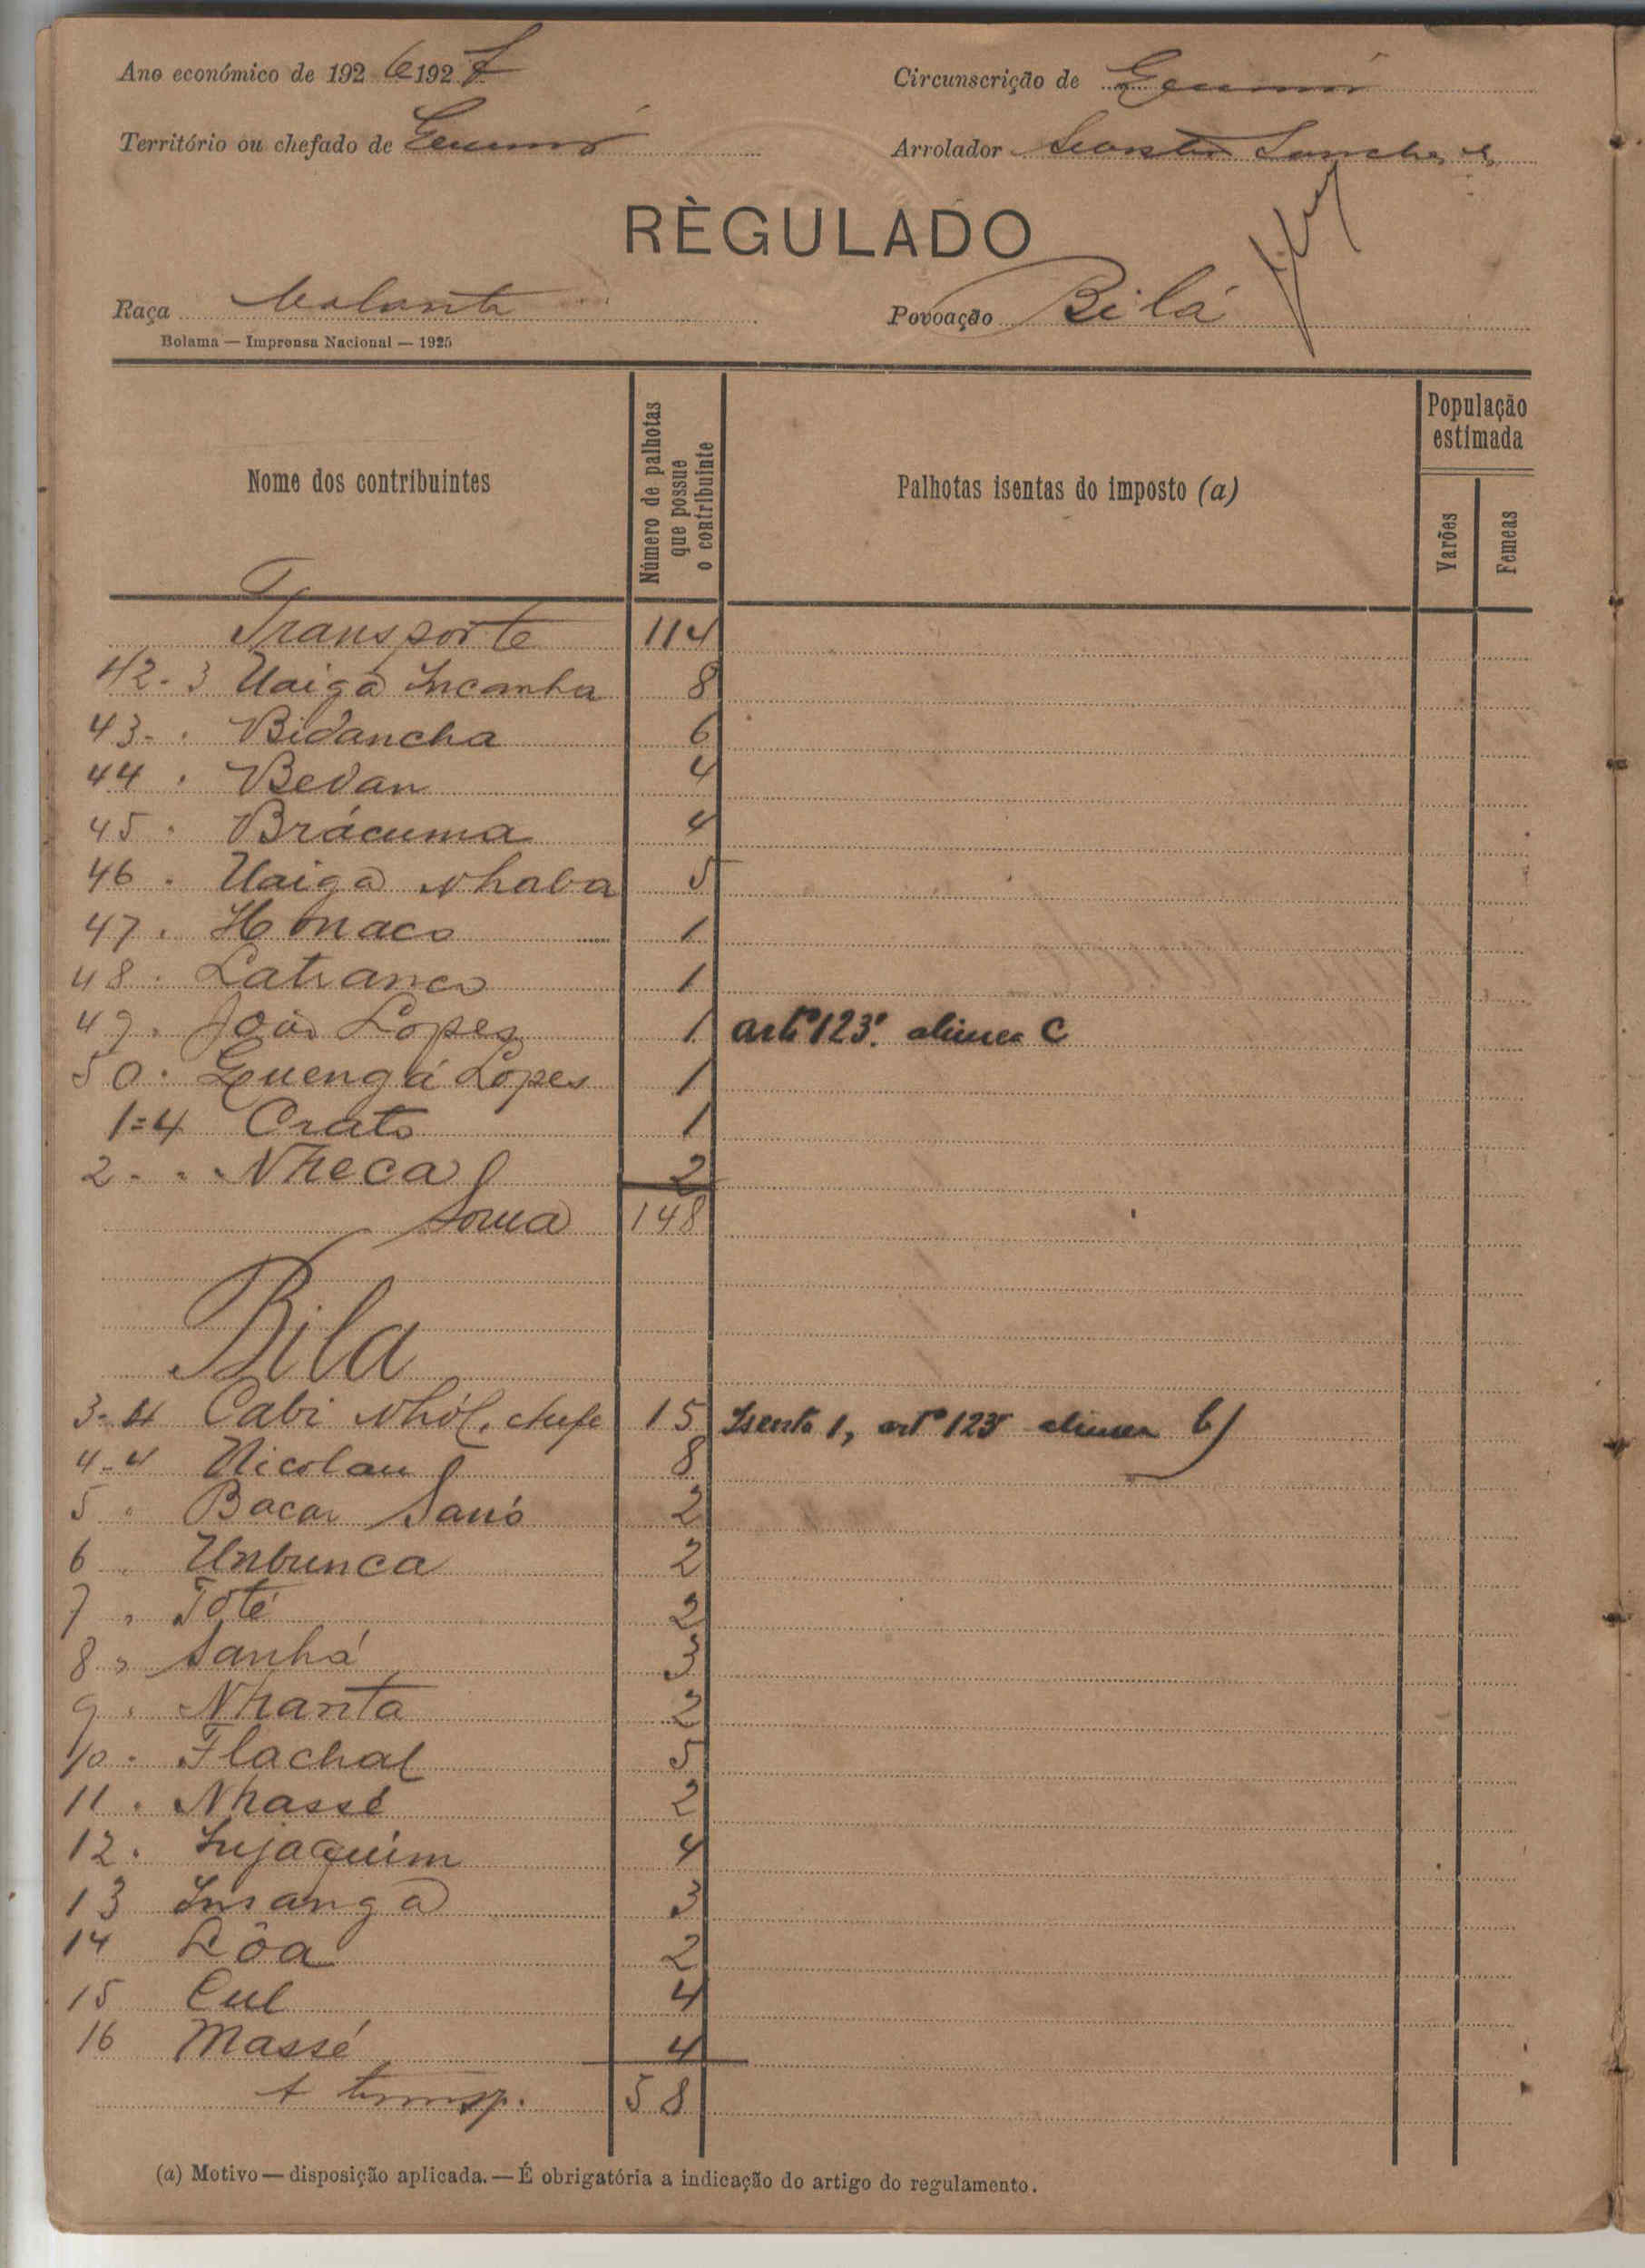 Ano económico de 1926 1927 Circunscrição de
Território ou chefado de Arrolador
RÈGULADO
Raça Balanta Povoação Bilá
Bolama — Imprensa Nacional — 1925
Nome dos contribuintes Número de palhotas que possue o contribuinte Palhotas isentas do imposto (a) População estimada Varões Femeas
Transporte 114
42. 3 Uaiga Incanha 8
43. . Bidancha 6
44 . Bedan 4
45 . Brácuma 4
46 . Uaiga Nhaba 5
47 . 1
48 . Latranco 1
49 . João Lopes 1 artº 123º. alinea C
50 . Quengá Lopes 1
1=4 Crato 1
2 . . Nheca 2
Soma 148
Bila
3-4 Cabi Nhól, chefe 15 Isento 1, artº 123 alinea b)
4-4 Nicolau 8
5 " Bacar Sanó 2
6 . Unbunca 2
7 " Toté 2
8 " Sanhá 3
9 . Nhanta 2
10 . Flachal 5
11 . Nhassé 2
12 . Injaquim 4
13 Insanga 3
14 Lôa 2
15 Cul 4
16 Massé 4
A transp. 58
(a) Motivo — disposição aplicada. — É obrigatória a indicação do artigo do regulamento.